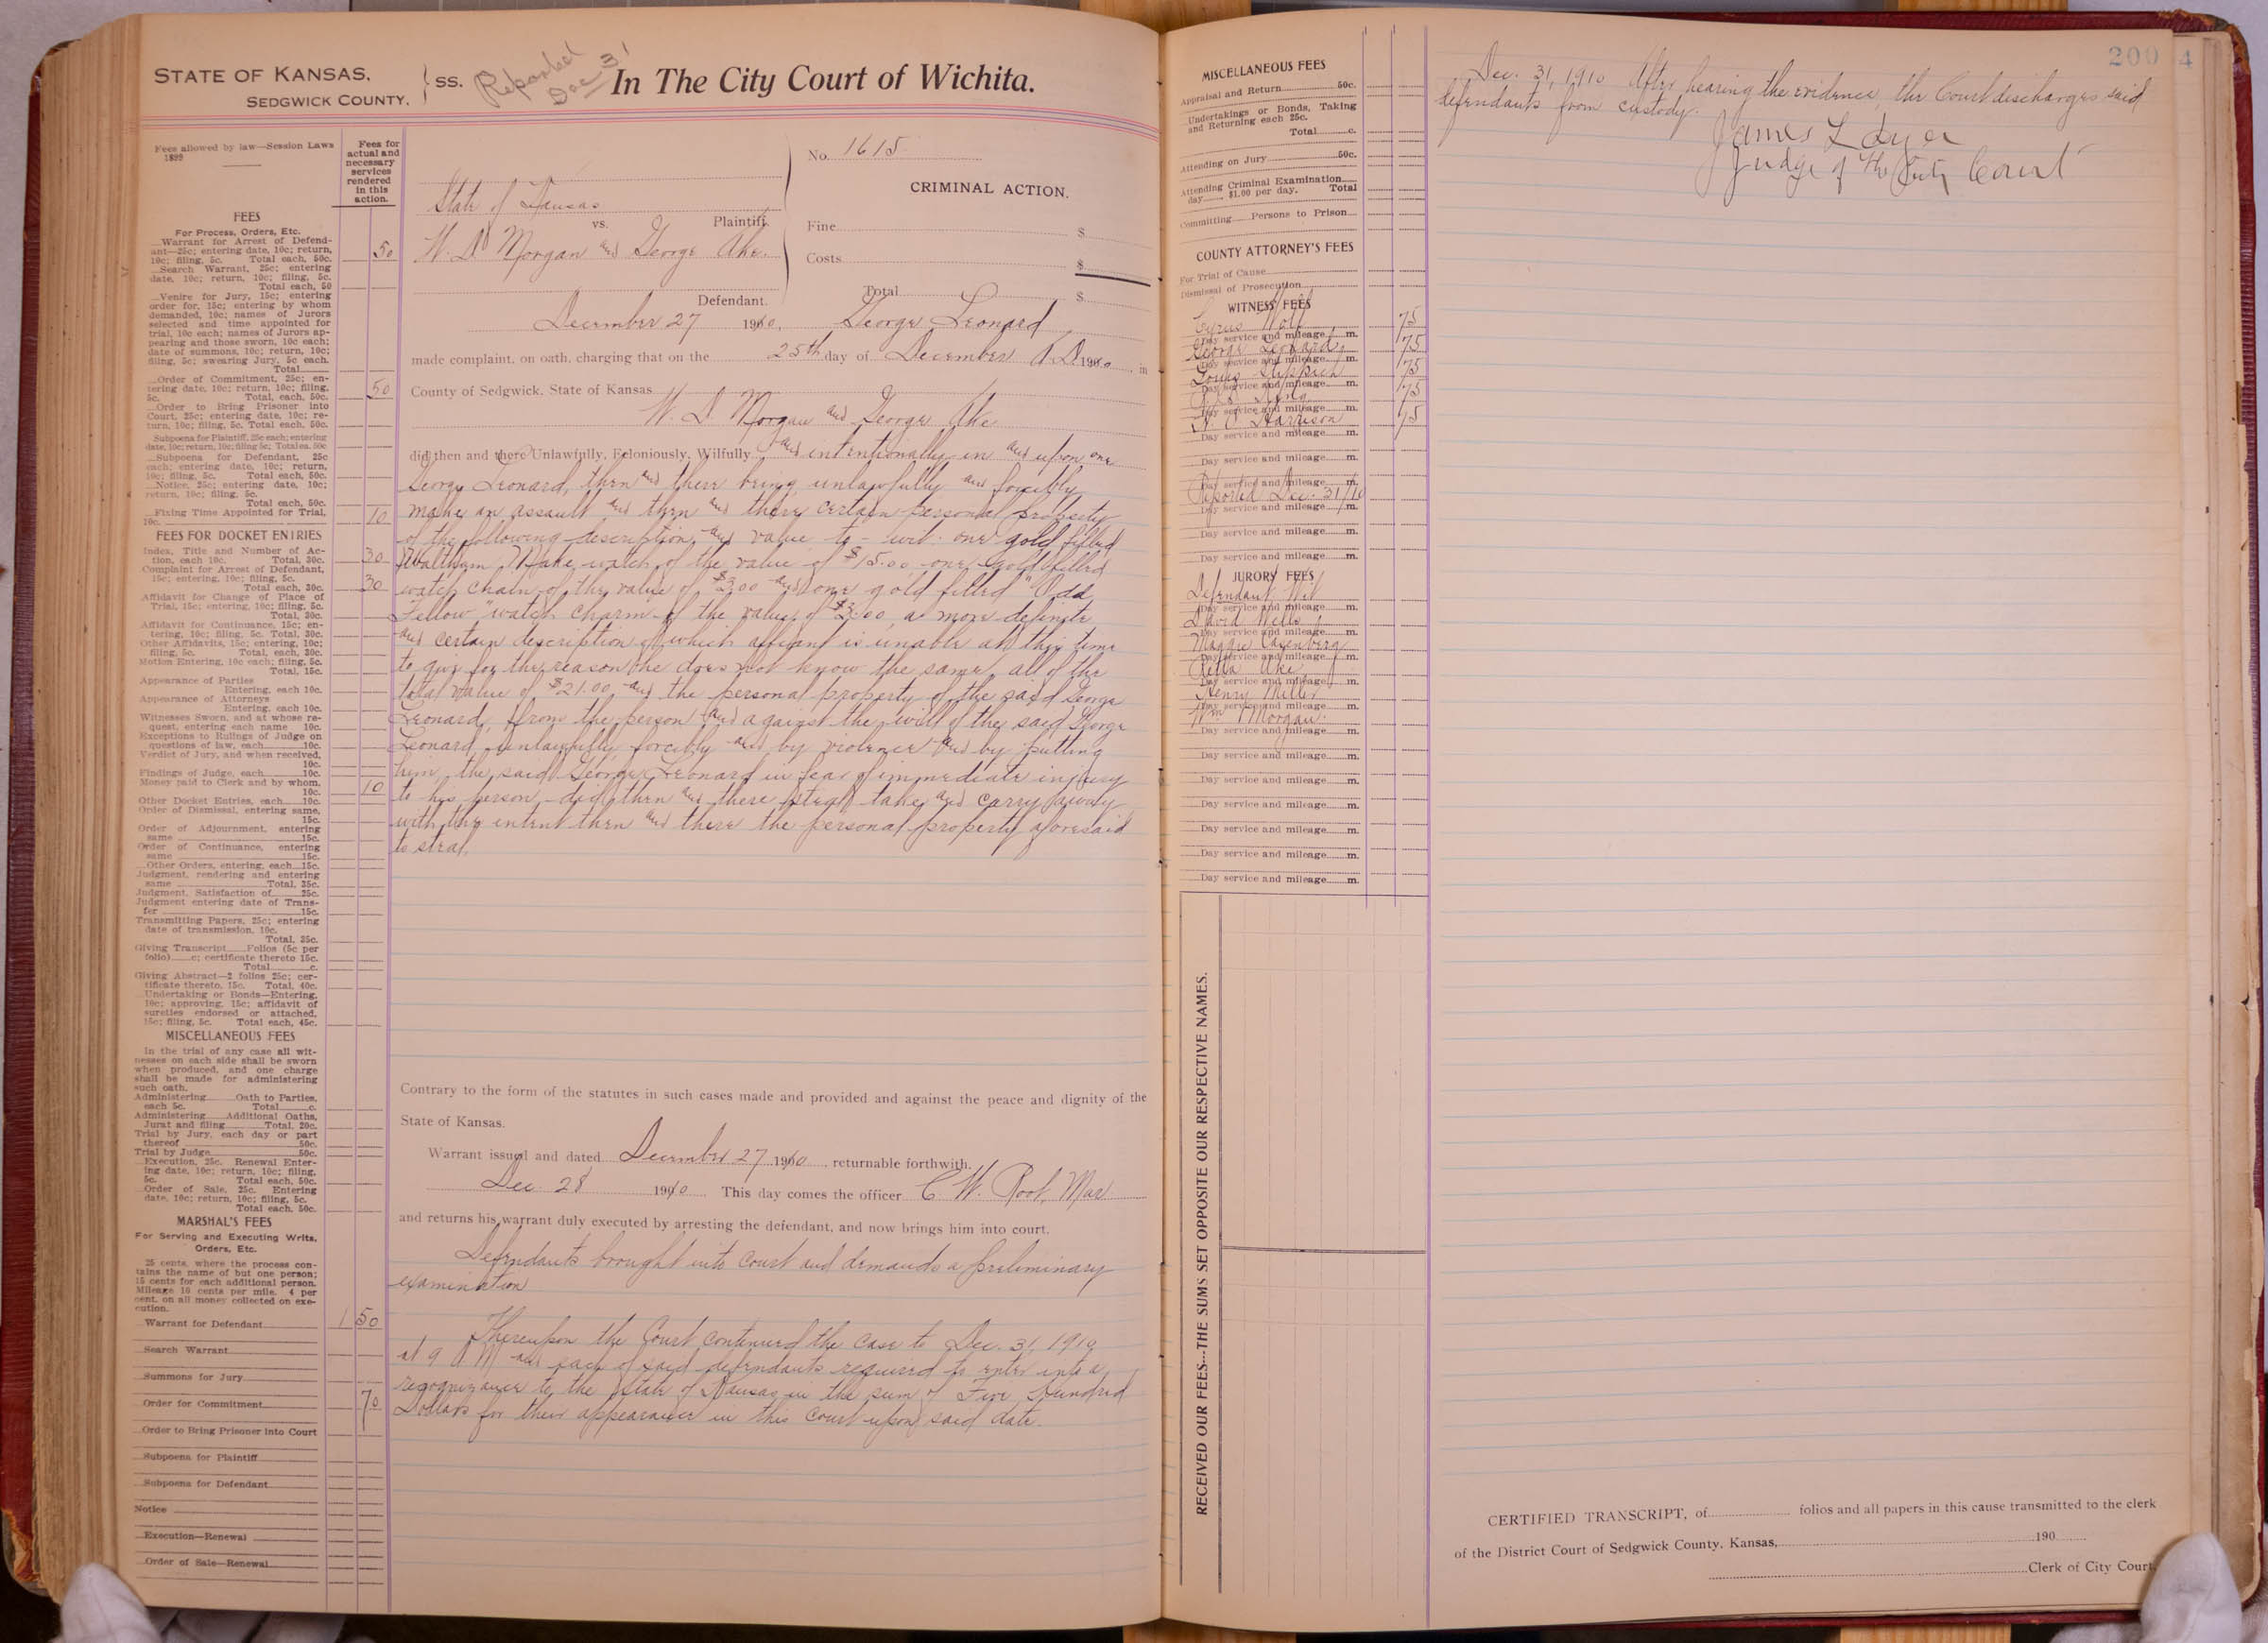 STATE OF KANSAS,
SEDGWICK COUNTY.
ss.
Reported
Dec 31
In The City Court of Wichita.
Fees allowed by law—Session Laws
1899
Fees for
actual and
necessary
services
rendered
in this
action.
FEES
For Process, Orders, Etc.
Warrant for Arrest of Defend-
ant—25c; entering date, 10c; return,
10c; filing, 5c. Total each, 50c. 50
Search Warrant, 25c; entering
date, 10c; return, 10c; filing, 5c.
Total each, 50
Venire for Jury, 15c; entering
order for, 15c; entering by whom
demanded, 10c; names of Jurors
selected and time appointed for
trial, 10c each; names of Jurors ap-
pearing and those sworn, 10c each;
date of summons, 10c; return, 10c;
filing, 5c; swearing Jury, 5c each.
Total
Order of Commitment, 25c; en-
tering date, 10c; return, 10c; filing,
5c. Total, each, 50c. 50
Order to Bring Prisoner into
Court, 25c; entering date, 10c; re-
turn, 10c; filing, 5c. Total each, 50c.
Subpoena for Plaintiff, 25c each; entering
date, 10c; return, 10c; filing 5c; Total ea. 50c
Subpoena for Defendant, 25c
each; entering date, 10c; return,
10c; filing, 5c. Total each, 50c.
Notice, 25c; entering date, 10c;
return, 10c; filing, 5c.
Total each, 50c.
Fixing Time Appointed for Trial,
10c. 10
FEES FOR DOCKET ENTRIES
Index, Title and Number of Ac-
tion, each 10c. Total, 30c. 30
Complaint for Arrest of Defendant,
15c; entering, 10c; filing, 5c.
Total each, 30c. 30
Affidavit for Change of Place of
Trial, 15c; entering, 10c; filing, 5c.
Total, 30c.
Affidavit for Continuance, 15c; en-
tering, 10c; filing, 5c. Total, 30c.
Other Affidavits, 15c; entering, 10c;
filing, 5c. Total, each, 30c.
Motion Entering, 10c each; filing, 5c.
Total, 15c.
Appearance of Parties
Entering, each 10c.
Appearance of Attorneys
Entering, each 10c.
Witnesses Sworn, and at whose re-
quest, entering each name 10c.
Exceptions to Rulings of Judge on
questions of law, each 10c.
Verdict of Jury, and when received,
10c.
Findings of Judge, each 10c.
Money paid to Clerk and by whom,
10c. 10
Other Docket Entries, each 10c.
Order of Dismissal, entering same,
15c.
Order of Adjournment, entering
same 15c.
Order of Continuance, entering
same 15c.
Other Orders, entering, each 15c.
Judgment, rendering and entering
same Total, 35c.
Judgment, Satisfaction of 25c.
Judgment entering date of Trans-
fer 15c.
Transmitting Papers, 25c; entering
date of transmission, 10c.
Total, 35c.
Giving Transcript Folios (5c per
folio) c; certificate thereto 15c.
Total c.
Giving Abstract—2 folios 25c; cer-
tificate thereto, 15c. Total, 40c.
Undertaking or Bonds—Entering,
10c; approving, 15c; affidavit of
sureties endorsed or attached,
15c; filing, 5c. Total each, 45c.
MISCELLANEOUS FEES
In the trial of any case all wit-
nesses on each side shall be sworn
when produced, and one charge
shall be made for administering
such oath.
Administering Oath to Parties,
each 5c. Total c.
Administering Additional Oaths,
Jurat and filing Total, 20c.
Trial by Jury, each day or part
thereof 50c.
Trial by Judge 50c.
Execution, 25c. Renewal Enter-
ing date, 10c; return, 10c; filing,
5c. Total each, 50c.
Order of Sale, 25c. Entering
date, 10c; return, 10c; filing, 5c.
Total each, 50c.
MARSHAL'S FEES
For Serving and Executing Writs,
Orders, Etc.
25 cents, where the process con-
tains the name of but one person;
15 cents for each additional person.
Mileage 10 cents per mile. 4 per
cent. on all money collected on exe-
cution.
Warrant for Defendant 1 50
Search Warrant
Summons for Jury
Order for Commitment 70
Order to Bring Prisoner into Court
Subpoena for Plaintiff
Subpoena for Defendant
Notice
Execution—Renewal
Order of Sale—Renewal
State of Kansas
vs. Plaintiff.
W. D Morgan and George Ake.
Defendant.
No. 1615
CRIMINAL ACTION.
Fine $
Costs $
Total $
December 27 1910, George Leonard
made complaint, on oath, charging that on the 25th day of December A.D. 1910 in
County of Sedgwick, State of Kansas
W. D Morgan and George Ake
did then and there Unlawfully, Feloniously, Wilfully and intentionally in and upon one
George Leonard, then and there being unlawfully and forcibly
make an assault and then and there certain personal property
of the following description and value to-wit: one gold filled
Waltham Make watch of the value of $15.00 one gold filled
watch chain of the value of $3.00 and one gold filled "Odd
Fellow" watch charm of the value of $3.00, a more definite
and certain description of which affiant is unable at this time
to give for the reason he does not know the same, all of the
total value of $21.00 and the personal property of the said George
Leonard, from the person and against the will of the said George
Leonard unlawfully forcibly and by violence and by putting
him, the said George Leonard in fear of immediate injury
to his person did then and there steal take and carry away
with the intent then and there the personal property aforesaid
to steal.
Contrary to the form of the statutes in such cases made and provided and against the peace and dignity of the
State of Kansas.
Warrant issued and dated December 27 1910, returnable forthwith.
Dec 28 1910 This day comes the officer C W. Root, Mar
and returns his warrant duly executed by arresting the defendant, and now brings him into court.
Defendants brought into Court and demands a preliminary
examination
Thereupon the Court continued the case to Dec. 31, 1910
at 9 A M and each of said defendants required to enter into a
recognizance to the State of Kansas in the sum of Five Hundred
Dollars for their appearance in this Court upon said date.
MISCELLANEOUS FEES
Appraisal and Return 50c.
Undertakings or Bonds, Taking
and Returning each 25c.
Total c.
Attending on Jury 50c.
Attending Criminal Examination
day $1.00 per day. Total
Committing Persons to Prison
COUNTY ATTORNEY'S FEES
For Trial of Cause
Dismissal of Prosecution
WITNESS FEES
Cyrus Wolf 75
Day service and mileage m.
George Leonard 75
Day service and mileage m.
Louis 75
Day service and mileage m.
King 75
Day service and mileage m.
Harrison 75
Day service and mileage m.
Day service and mileage m.
Day service and mileage m.
Reported Dec. 31/10
Day service and mileage m.
Day service and mileage m.
Day service and mileage m.
JURORS FEES
Defendant Wit
Day service and mileage m.
David Wells
Day service and mileage m.
Maggie
Day service and mileage m.
Ake
Day service and mileage m.
Henry Miller
Day service and mileage m.
Wm Morgan
Day service and mileage m.
Day service and mileage m.
Day service and mileage m.
Day service and mileage m.
Day service and mileage m.
Day service and mileage m.
Day service and mileage m.
RECEIVED OUR FEES---THE SUMS SET OPPOSITE OUR RESPECTIVE NAMES.
200
4
Dec. 31, 1910 After hearing the evidence, the Court discharges said
defendants from custody.
James L Dyer
Judge of the City Court
CERTIFIED TRANSCRIPT, of folios and all papers in this cause transmitted to the clerk
of the District Court of Sedgwick County, Kansas, 190
Clerk of City Court